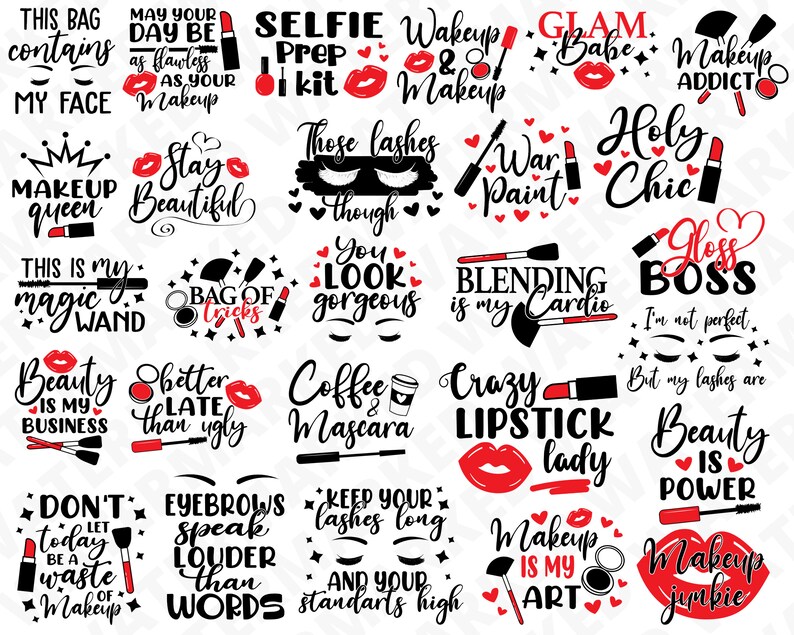 THIS BAG
contains
MY FACE
MAY YOUR
DAY BE
as flawless
AS YOUR
Makeup
SELFIE
Prep
kit
Wakeup
&
Makeup
GLAM
Babe
Makeup
ADDICT
MAKEUP
queen
Stay
Beautiful
Those lashes
though
War
Paint
Holy
Chic
THIS IS my
magic
WAND
BAG OF
tricks
You
LOOK
gorgeous
BLENDING
is my Cardio
Gloss
BOSS
I'm not perfect
But my lashes are
Beauty
IS MY
BUSINESS
better
LATE
than ugly
Coffee
&
Mascara
Crazy
LIPSTICK
lady
Beauty
IS
POWER
DON'T
LET
today
BE A
waste
OF
Makeup
EYEBROWS
speak
LOUDER
than
WORDS
KEEP YOUR
lashes long
AND YOUR
standarts high
Makeup
IS MY
ART
Makeup
junkie